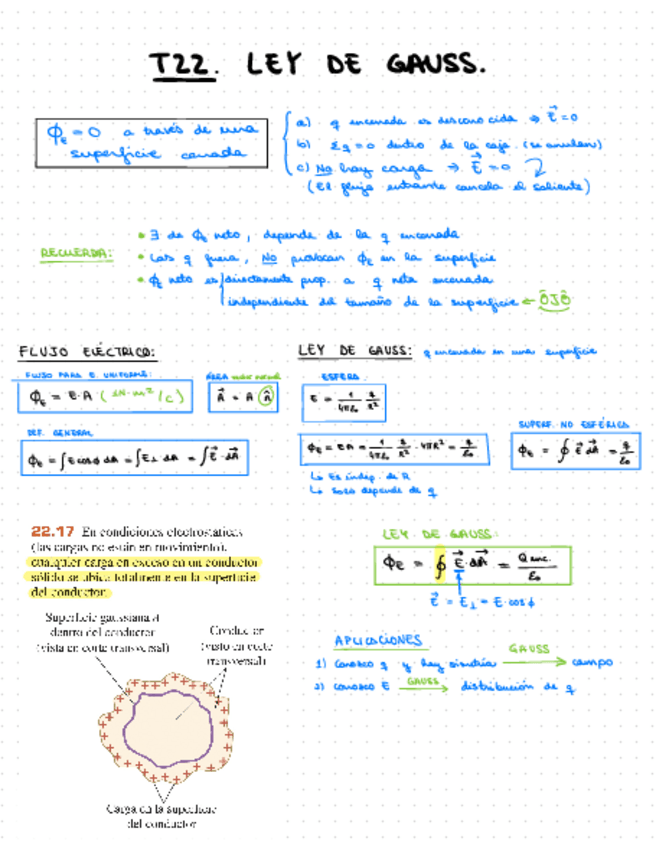 T22. LEY DE GAUSS.
Φ_E = 0 a través de una
superficie cerrada
a) q encerrada es desconocida ⇒ E⃗ = 0
b) Σq = 0 dentro de la caja (se anulan)
c) No hay carga → E⃗ = 0
(El flujo entrante cancela el saliente)
RECUERDA:
• ∃ de Φ_E neto, depende de la q encerrada
• Las q fuera, NO provocan Φ_E en la superficie
• Φ_E neto es directamente prop. a q neta encerrada
independiente del tamaño de la superficie ← OJO
FLUJO ELÉCTRICO:
FLUJO PARA E UNIFORME:
Φ_E = E·A (N·m²/C)
ÁREA
A⃗ = A n̂
DEF. GENERAL
Φ_E = ∫E cosϕ dA = ∫E⊥ dA = ∫E⃗·dA⃗
LEY DE GAUSS: q encerrada en una superficie
ESFERA:
E = 1/4πε₀ q/R²
Φ_E = EA = 1/4πε₀ q/R² · 4πR² = q/ε₀
↳ Es indep. de R
↳ Solo depende de q
SUPERF. NO ESFÉRICA
Φ_E = ∮ E⃗ dA⃗ = q/ε₀
22.17 En condiciones electrostáticas
(las cargas no están en movimiento),
cualquier carga en exceso en un conductor
sólido se ubica totalmente en la superficie
del conductor.
Superficie gaussiana A
dentro del conductor
(vista en corte transversal)
Conductor
(visto en corte
transversal)
Carga en la superficie
del conductor
LEY DE GAUSS:
Φ_E = ∮ E⃗·dA⃗ = Q enc./ε₀
E⃗ = E⊥ = E·cosϕ
APLICACIONES
1) conozco q y hay simetría GAUSS → campo
2) conozco E GAUSS → distribución de q